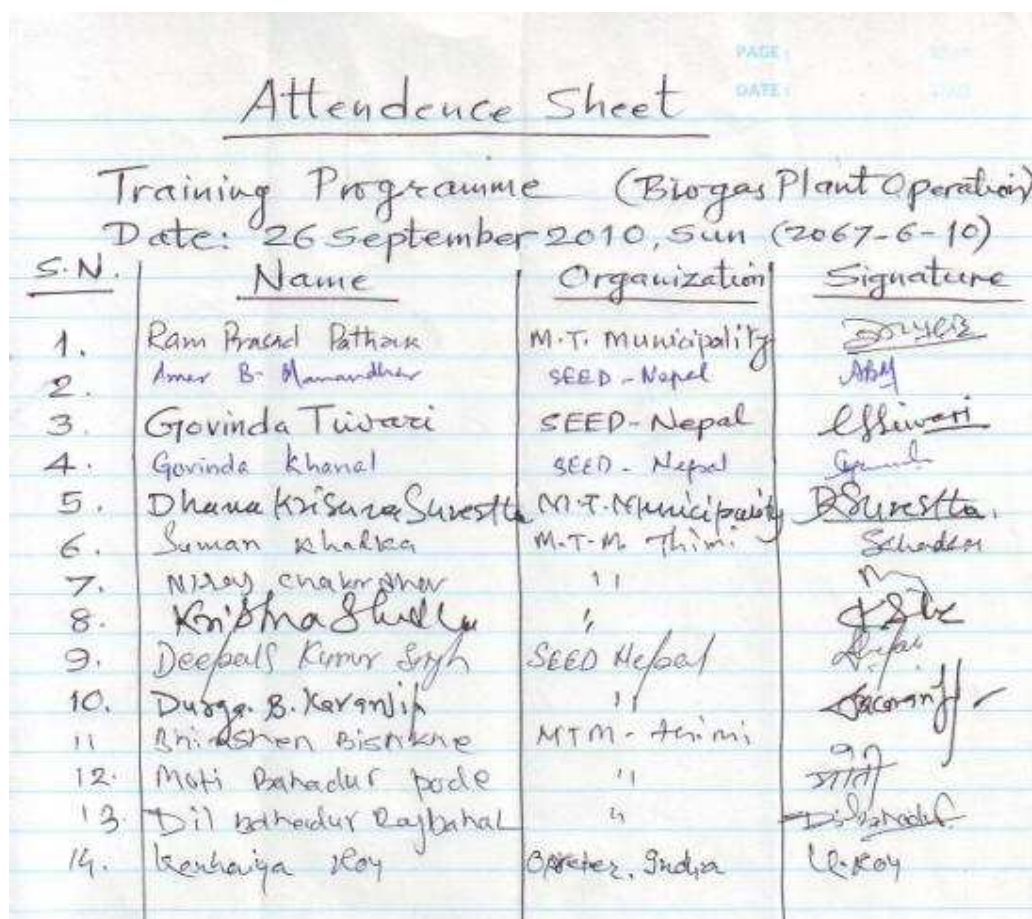 PAGE:
DATE:
Attendence Sheet
Training Programme (Biogas Plant Operation)
Date: 26 September 2010, Sun (2067-6-10)
S.N. Name Organization Signature
1. Ram Prasad Pathak M.T. Municipality
2. Amar B. Manandhar SEED-Nepal ABM
3. Govinda Tiwari SEED-Nepal
4. Govinda Khanal SEED-Nepal
5. Dhana Krisna Srrestta M.T. Municipality
6. Suman Khadka M.T.M. Thimi
7. Niraj "
8. Krishna "
9. Deepak Kumar Singh SEED Nepal
10. Durga. B. Karanjit "
11 MTM-Thimi
12. Moti Bahadur pode " मोती
13. Dil Bahadur Rajbahak " Dilbahadur
14. Kanhaiya Roy India K.Roy